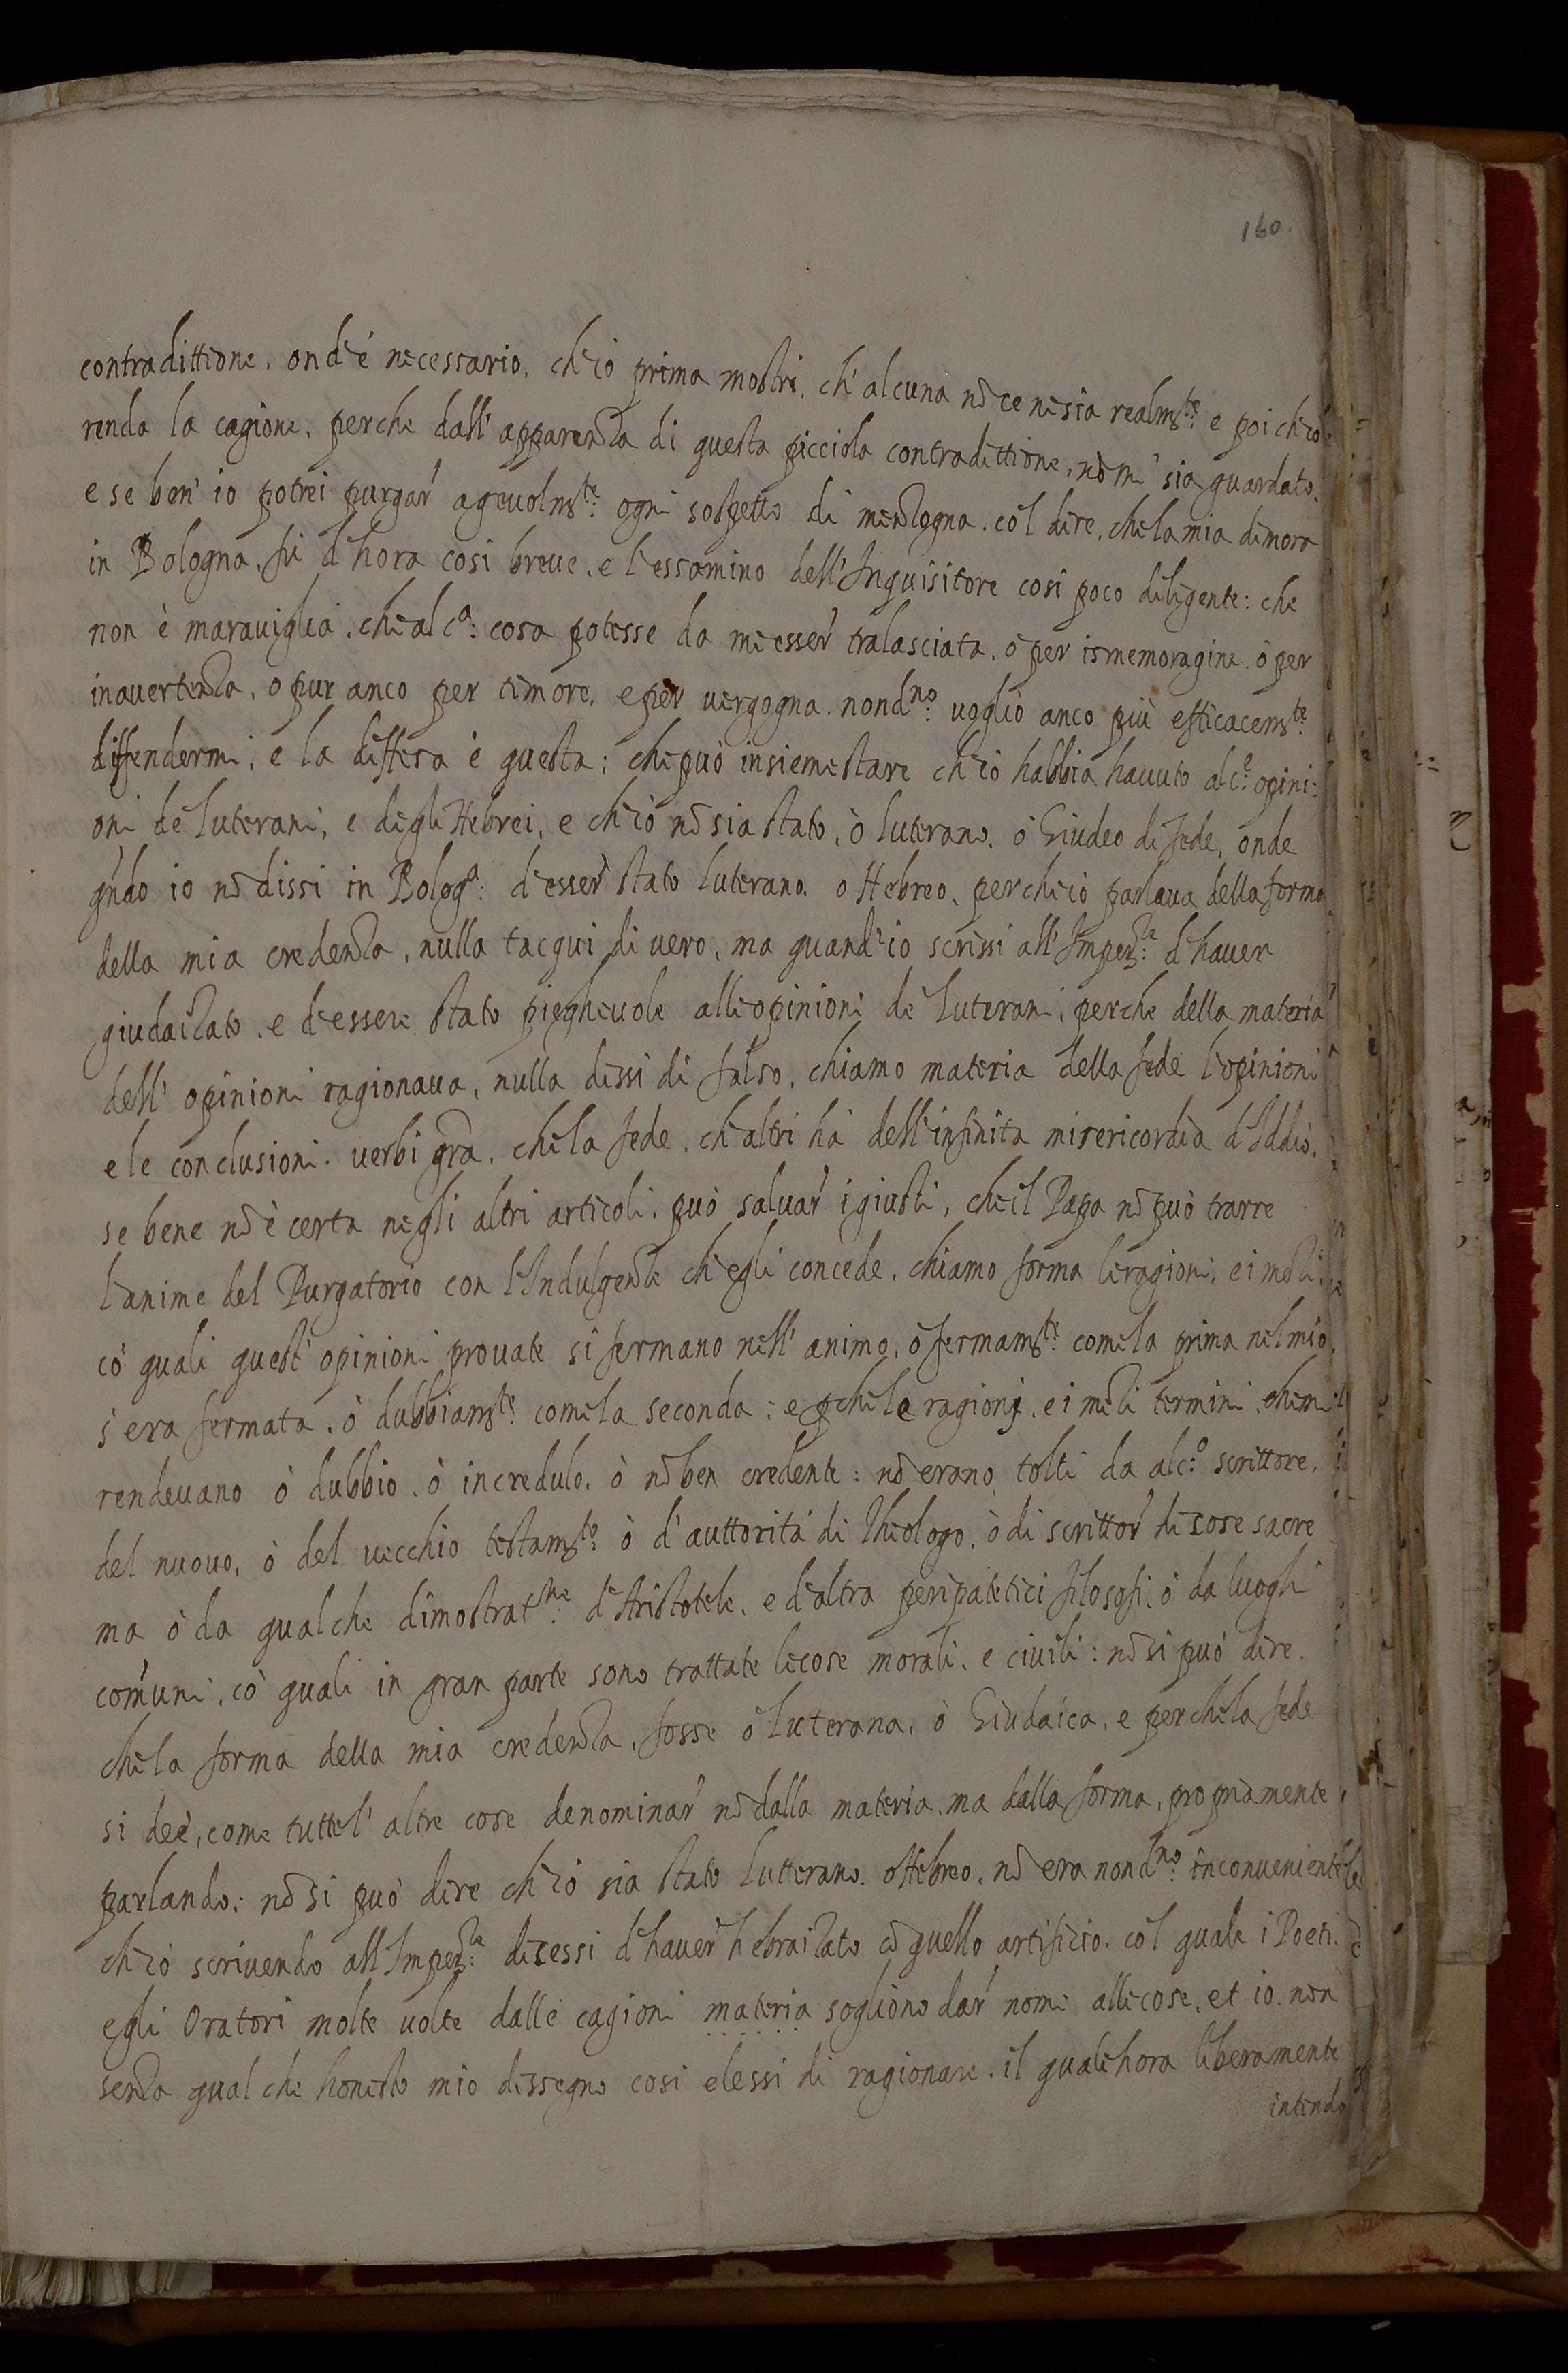 160.
contradittione. ond'è necessario, ch'io prima mostri, ch'alcuna nõ ce ne sia realm.te e poi ch'io
renda la cagione, perche dall'apparenza di questa picciola contradittione, nõ mi sia guardato.
e se ben' io potrei purgar' agevolm.te ogni sospetto di menzogna. co'l dire, che la mia dimora
in Bologna, fù d'hora cosi breue, e l'essamino dell'Inquisitore cosi poco diligente: che
non è marauiglia, che alc.a: cosa potesse da me esser' tralasciata, ò per ismemoragine, ò per
inauertenza, o pur anco per timore, e per uergogna. nond.no: uoglio anco più efficacem.te
diffendermi, e la diffesa è questa; che può insieme stare ch'io habbia hauuto alc.e opini:
oni de' Luterani, e degli Hebrei, e ch'io nõ sia stato, ò Luterano, ò Giudeo di fede, onde
qñdo io nõ dissi in Bolog.a: d'esser' stato Luterano, o Hebreo, perch'io parlaua della forma
della mia credenza, nulla tacqui di uero, ma quand'io scrissi all'Imper.te d'hauer
giudaizato, e d'essere stato pieghevole all'opinioni de' Luterani, perche della materia
dell'opinioni ragionaua, nulla dissi di falso, chiamo materia della fede l'opinioni
e le conclusioni. uerbi gr̃a. che la fede, ch'altri hà dell'infinita misericordia d'Iddio,
se bene nõ è certa negli altri articoli, può saluar' i giusti, che il Papa nõ può trarre
l'anime del Purgatorio con l'Indulgenze ch'egli concede, chiamo forma le ragioni, e i mezi,
cò quali quest'opinioni prouate si fermano nell'animo, ò fermam.te come la prima nel mio
s'era fermata, ò dubbiam.te come la seconda: e p̱che le ragioni, e i mezi termini, che mi
rendeuano ò dubbio, ò incredulo, ò nõ ben credente: nõ erano tolti da alc.o scrittore,
del nuouo, ò del uecchio testam.to ò d'auttorità di Theologo, ò di scrittor' di cose sacre
ma ò da qualche dimostrat.ne d'Aristotele, e d'altra peripatetici filosofi, ò da luoghi
com̃uni, cò quali in gran parte sono trattate le cose morali, e ciuili: nõ si può dire.
che la forma della mia credenza, fosse ò Luterana, ò Giudaica, e perche la fede
si deè, come tutte l'altre cose denominar' nõ dalla materia, ma dalla forma, propriamente
parlando; nõ si può dire ch'io sia stato Lutterano, o Hebreo, nõ era nond.no: inconueniente
ch'io scriuendo all'Imper.te dicessi d'hauer' hebraizato cõ quello artificio, co'l quale i Poeti,
e gli Oratori molte uolte dalle cagioni materia sogliono dar' nome alle cose, et io non
senza qualche honesto mio dissegno cosi elessi di ragionare. il quale hora liberamente
intendo